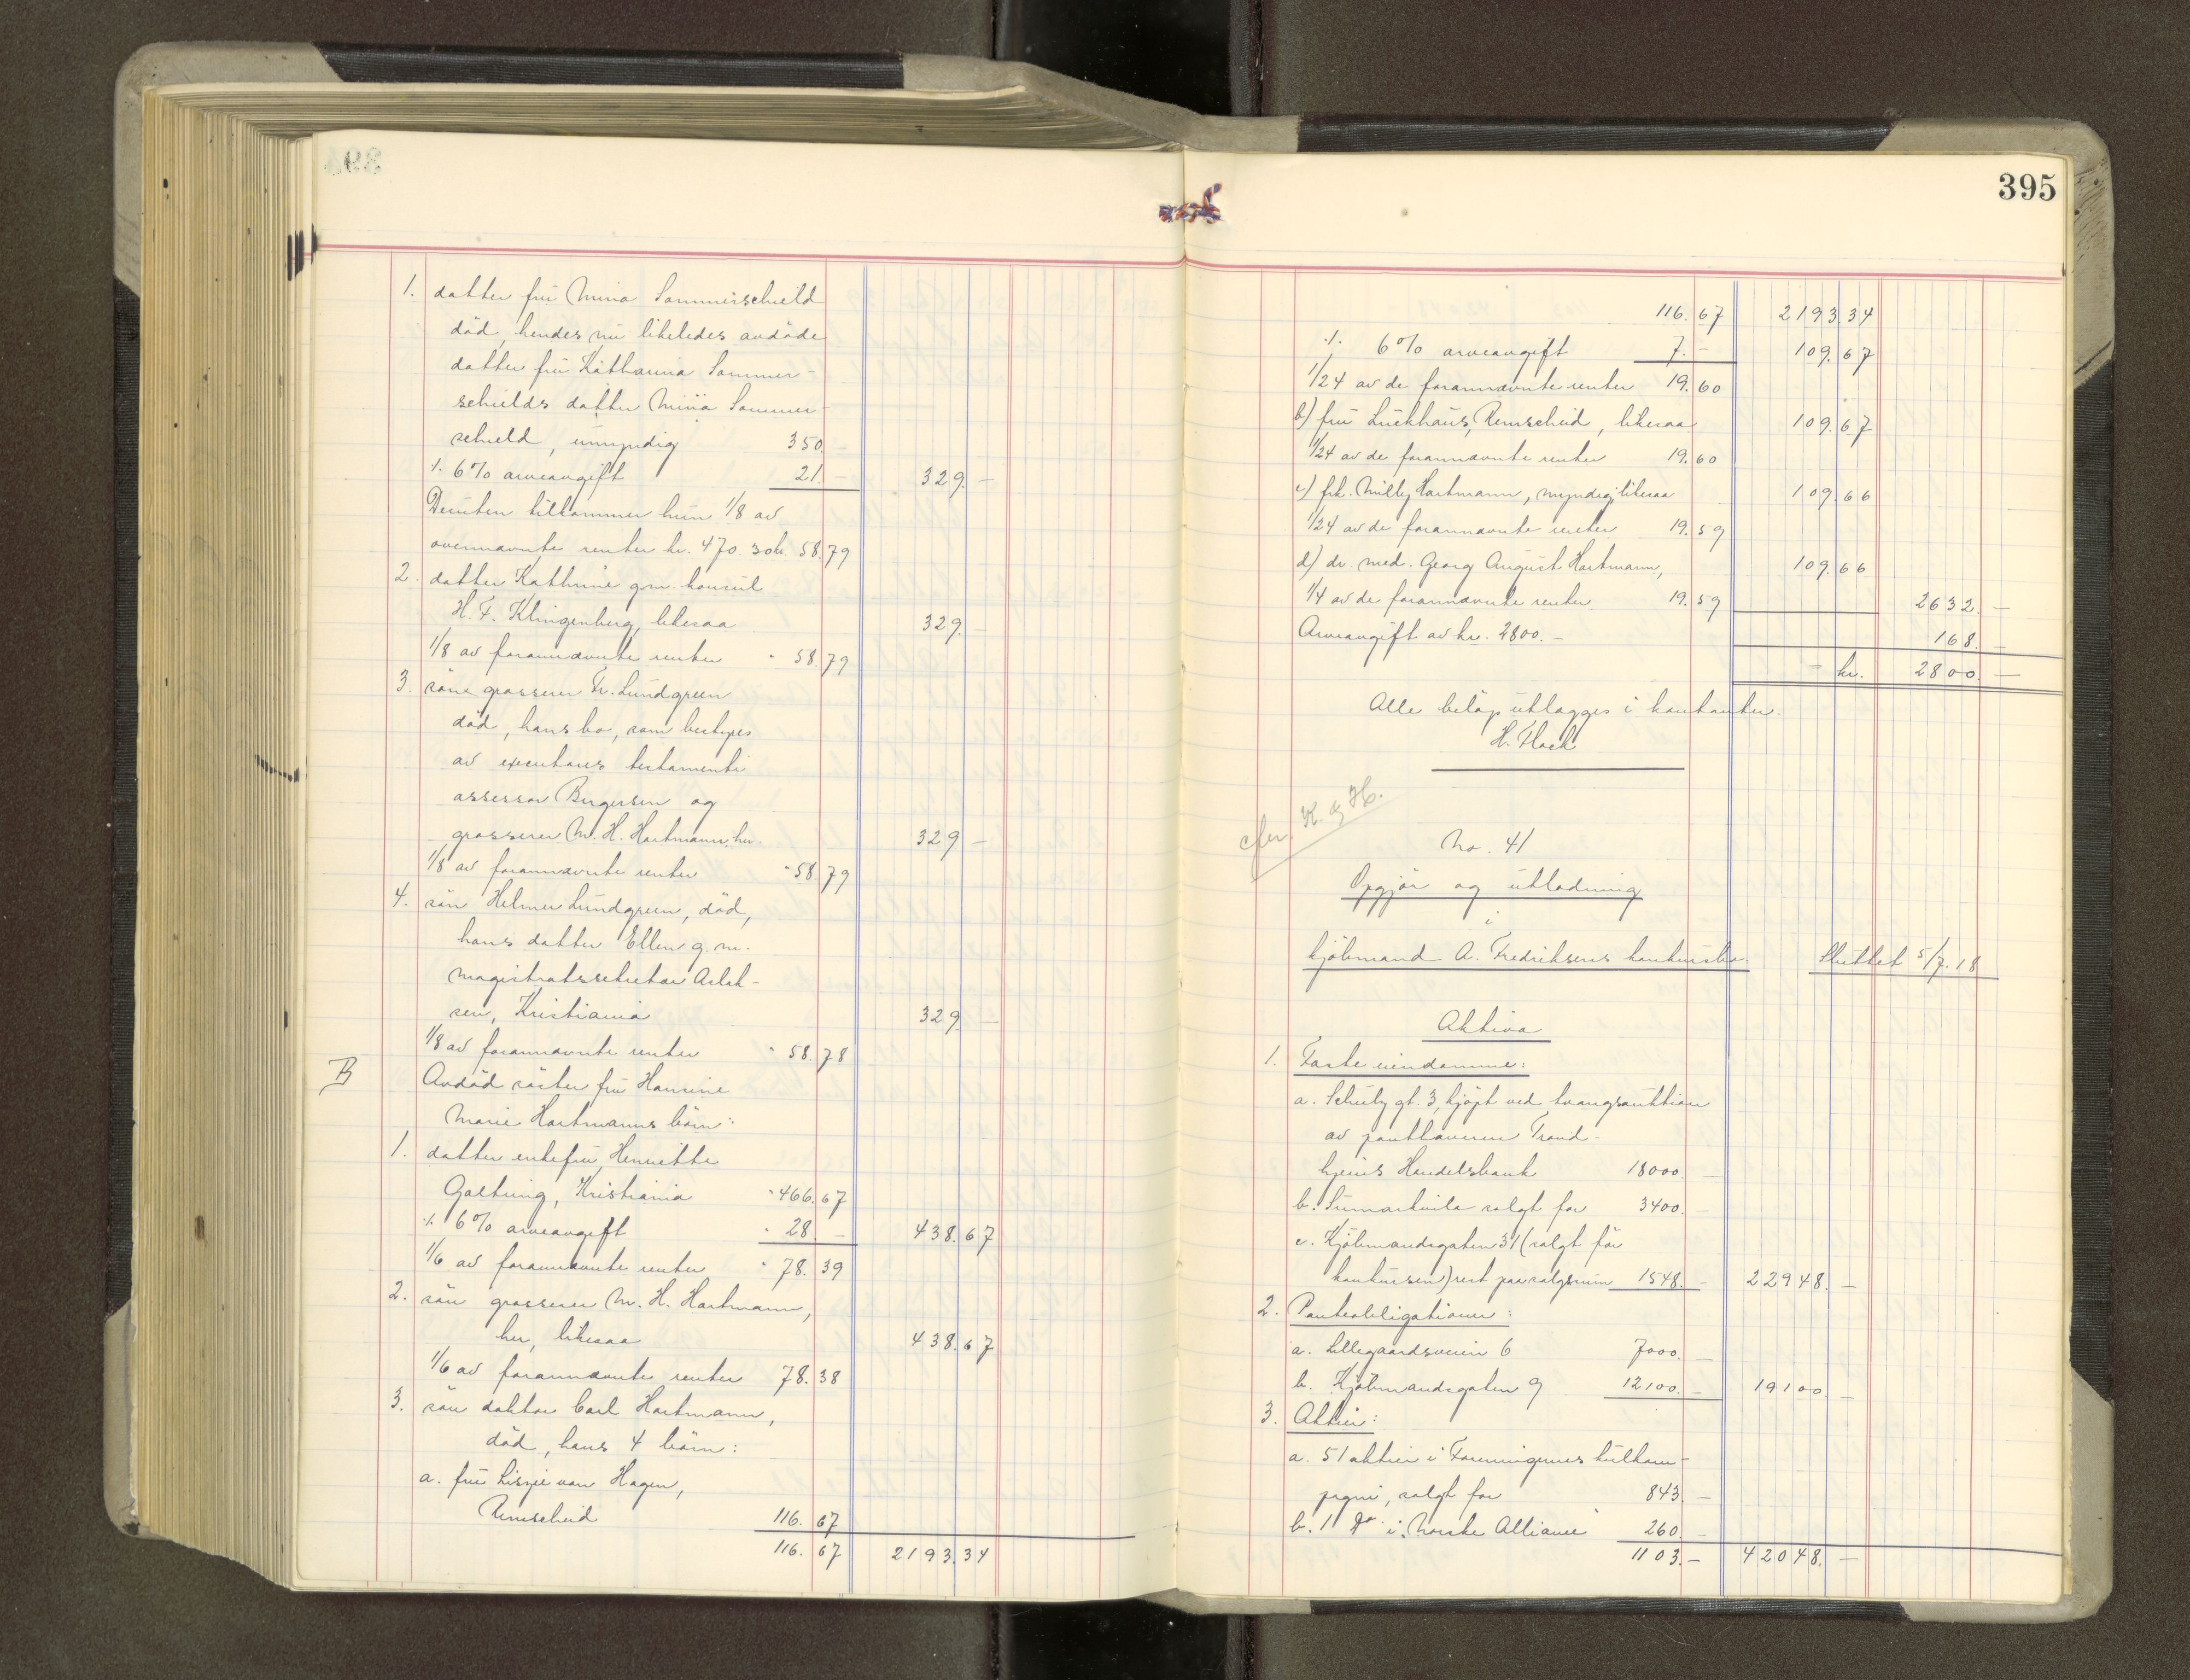 1. datter fru Mina Sommerschield
död, hendes nu likeledes avdöde
datter fru Katharina Sommer-
schields datter Mina Sommer-
schield, umyndig 350 -
÷ 6% arveavgift 21. - 329. -
Desuten tilkommer hun 1/8 av
ovennævnte renter kr. 470.30 kr. 58.79
2. datter Kathrine gm. konsul
H. F. Klingenberg, likesaa 329. -
1/8 av forannævnte renter " 58.79
3. sön grosserer Fr. Lundgreen
död, hans bo, som bestyres
av executores testamenti
assessor Bergersen og
grosserer M. H. Hartmann, her 329 -
1/8 av forannævnte renter " 58.79
4. sön Helmer Lundgreen, död,
hans datter Ellen g.m.
magistratssekretær Aslak-
sen, Kristiania 329 -
1/8 av forannævnte renter " 58.78
B Avdöd söster fru Hansine
Marie Hartmanns börn:
1. datter enkefru Henriette
Galtung, Kristiania " 466.67
÷ 6% arveavgift " 28. - 438.67
1/6 av forannævnte renter " 78.39
2. sön grosserer M. H. Hartmann,
her, likesaa 438.67
1/6 av forannævnte renter 78.38
3. sön doktor Carl Hartmann,
död, hans 4 börn:
a. fru Liszie von Hagen,
Remscheid 116.67
116.67 2193.34
395
116.67 2193.34
÷ 6% arveavgift 7. - 109.67
1/24 av de forannævnte renter 19.60
b) fru Luckhaus, Remscheid, likesaa 109.67
1/24 av de forannævnte renter 19.60
c) frk. Milly Hartmann, myndig, likesaa 109.66
1/24 av de forannævnte renter 19.59
d) dr. med. Georg August Hartmann, 109.66
1/4 av de forannævnte renter 19.59 2632. -
Arveavgift av kr. 2800. - 168. -
= kr. 2800. -
Alle belöp utlægges i kontanter.
H. Flock
cfr. K. & H.
No. 41
Opgjör og utlodning
i
kjöbmand A. Fredriksens konkursbo. Sluttet 5/7.18
Aktiva
1. Faste eiendomme:
a. Schulz gt. 3, kjöpt ved tvangsauktion
av panthaveren Trond-
hjems Handelsbank 18000. -
b. Sumarkvila solgt for 3400. -
c. Kjöbmandsgaten 31 (solgt för
konkursen) rest paa salgssum 1548. - 22948. -
2. Panteobligationer:
a. Lillegaardsveien 6 7000. -
b. Kjöbmandsgaten 9 12100. - 19100 -
3. Aktier:
a. 51 aktier i Foreningernes kulkom-
pagni, solgt for 843. -
b. 1 do i "Norske Alliance" 260. -
1103. - 42048. -